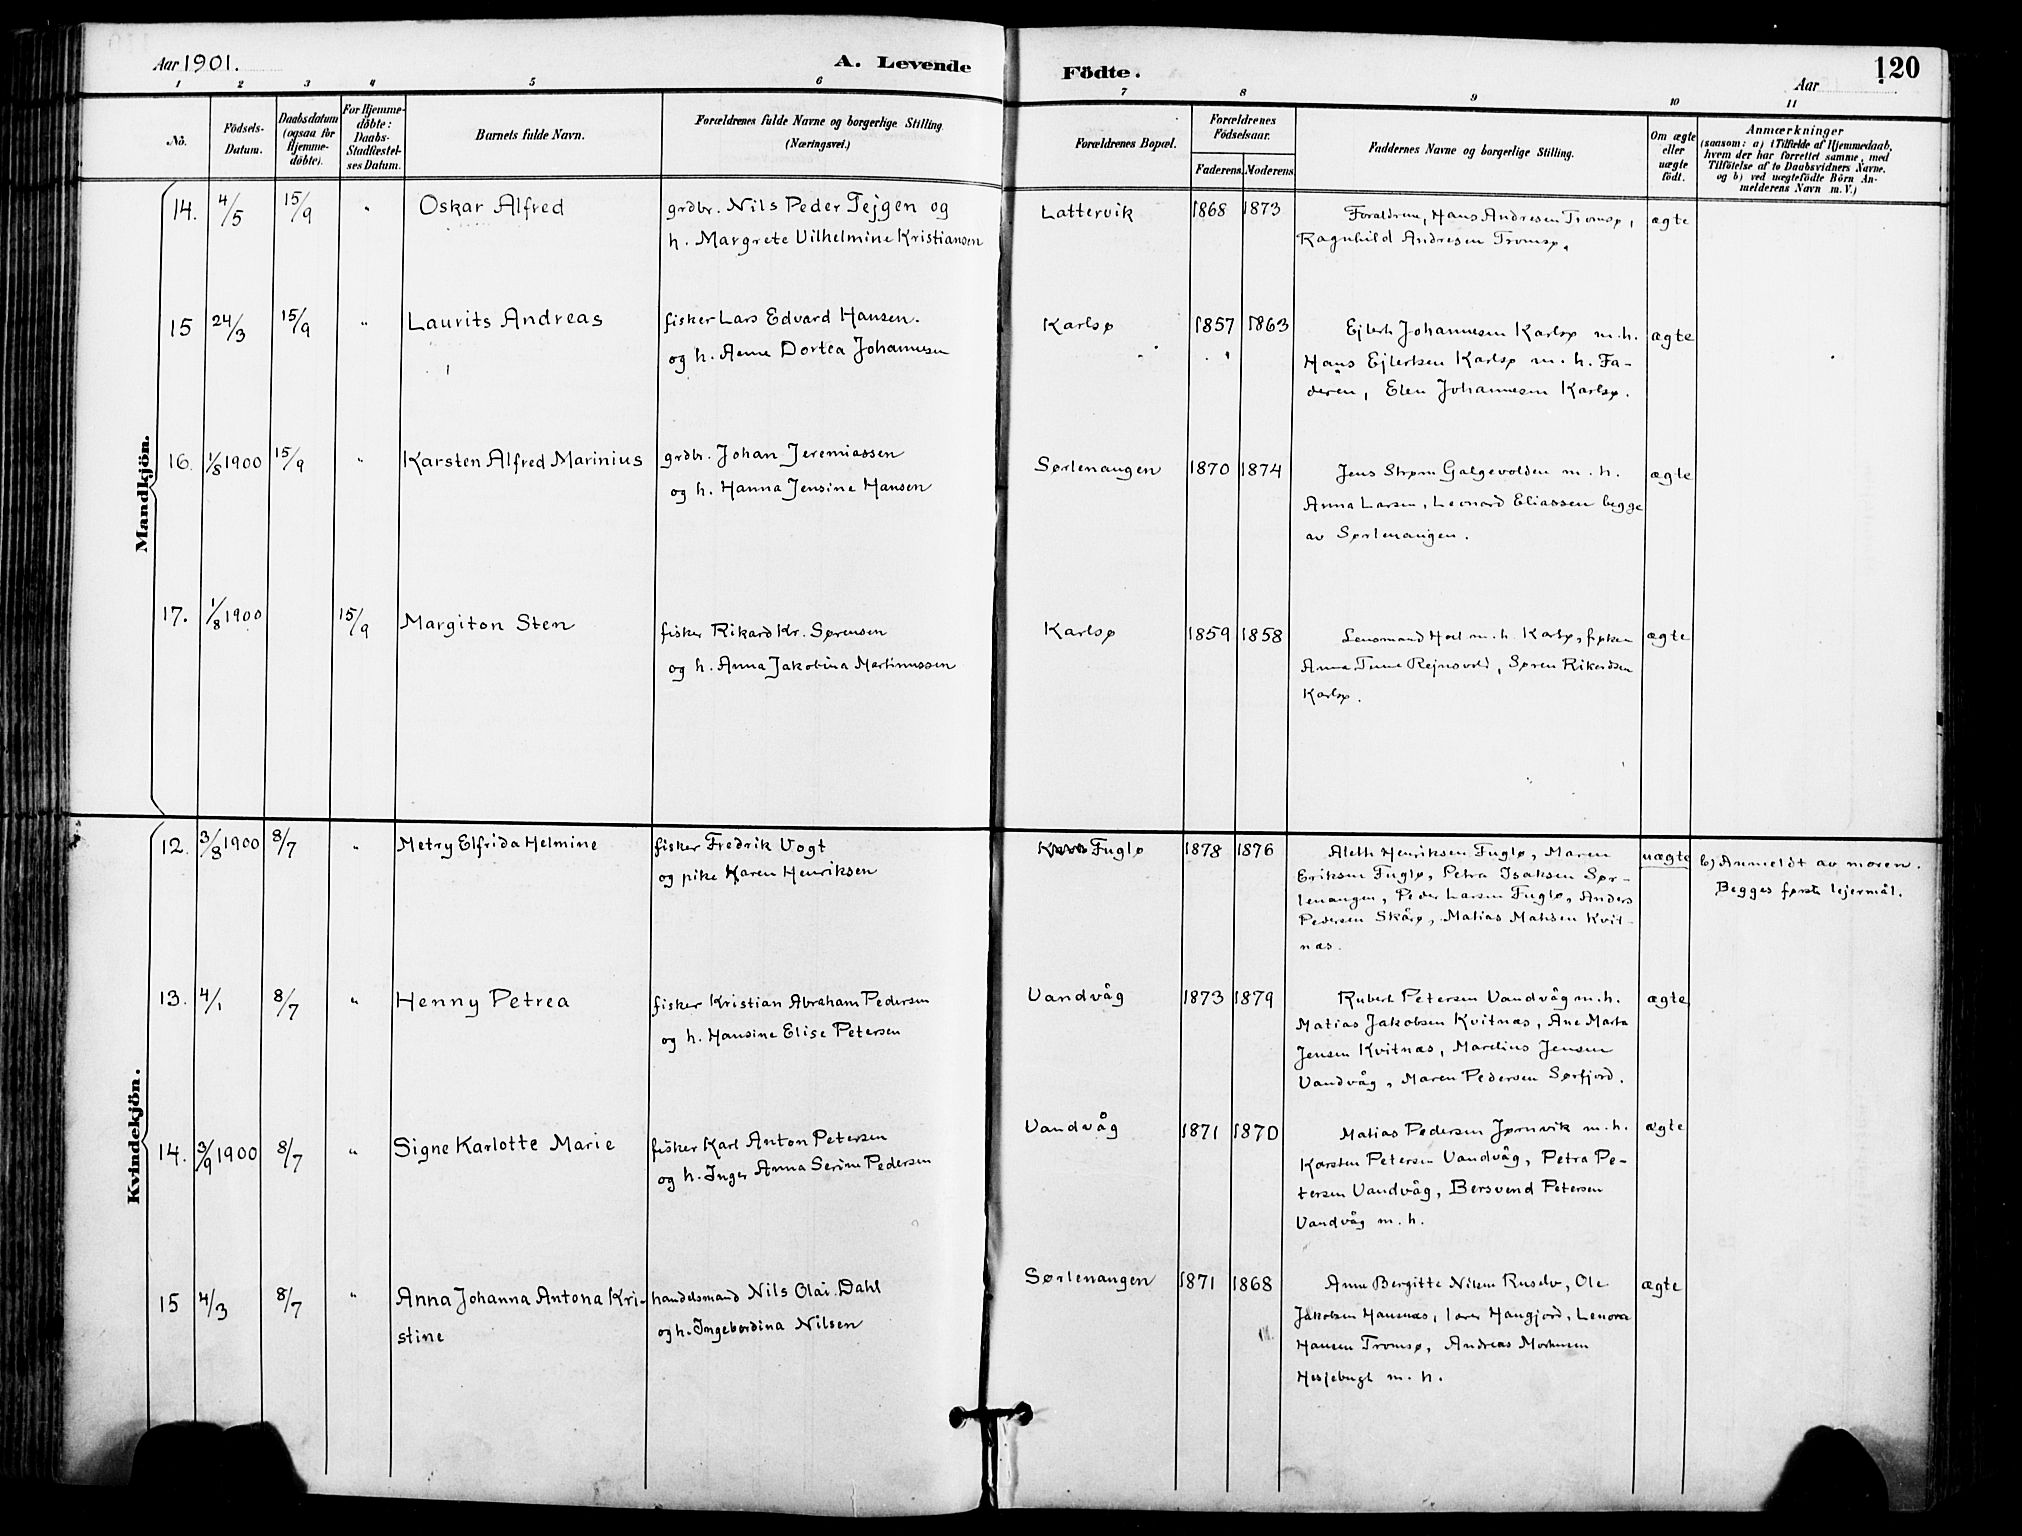 Aar 1901.
A. Levende Födte.
Aar
120
1 2 3 4 5 6 7 8 9 10 11
No.
Födsels-Datum.
Daabsdatum (ogsaa för Hjemme-döbte).
For Hjemme-döbte: Daabs-Stadfæstel-ses Datum.
Barnets fulde Navn.
Forældrenes fulde Navne og borgerlige Stilling.
(Næringsvei.)
Forældrenes Bopæl.
Forældrenes Födselsaar.
Faderens. Moderens.
Faddernes Navne og borgerlige Stilling.
Om ægte eller uægte födt.
Anmærkninger
(saasom: a) i Tilfælde af Hjemmedaab,
hvem der har forrettet samme, med
Tilföielse af to Daabsvidners Navne.
og b) ved uægtefödte Börn An-
melderens Navn m. V.)
Mandkjön.
14. 4/5 15/9 " Oskar Alfred grdbr. Nils Peder Tejgen og Lattervik 1868 1873 Forældrene, Hans Andresen Tromsø, ægte
h. Margrete Vilhelmine Kristiansen Ragnhild Andresen Tromsø.
15 24/3 15/9 " Laurits Andreas fisker Lars Edvard Hansen. Karlsø 1857 1863 Ejlert Johannesen Karlsø m. h. ægte
og h. Anne Dortea Johannesen Hans Ejlertsen Karlsø m. h. Fa-
deren, Elen Johannesen Karlsø.
16. 1/8 1900 15/9 " Karsten Alfred Marinius grdbr. Johan Jeremiassen Sørlenangen 1870 1874 Jens Strøm Galgevolden m. h. ægte
og h. Hanna Jensine Hansen Anna Larsen, Leonard Eliassen begge
av Sørlenangen.
17. 1/8 1900 15/9 Margiton Sten fisker Rikard Kr. Sørensen Karlsø 1859 1858 Lensmand m. h. Karlsø, frøken ægte
og h. Anna Jakobina Martinussen Anna Rejnsvold, Søren Rikardsen
Karlsø.
Kvindekjön.
12. 3/8 1900 8/7 " Metry Elfrida Helmine fisker Fredrik Vogt Fuglø 1878 1876 Aleth Henriksen Fuglø, Maren uægte b) Anmeldt av moren.
og pike Karen Henriksen Eriksen Fuglø, Petra Isaksen Sør- Begges første lejermål.
lenangen, Peder Larsen Fuglø, Anders
Pedersen Skårø, Matias Matisen Kvit-
næs.
13. 4/1 8/7 " Henny Petrea fisker Kristian Abraham Pedersen Vandvåg 1873 1879 Rubert Petersen Vandvåg m. h. ægte
og h. Hansine Elise Petersen Matias Jakobsen Kvitnæs, Ane Marta
Jensen Kvitnæs, Marelius Jensen
Vandvåg, Maren Pedersen Sørfjord.
14. 3/9 1900 8/7 " Signe Karlotte Marie fisker Karl Anton Petersen Vandvåg 1871 1870 Matias Pedersen Jørnvik m. h. ægte
og h. Inger Anna Serine Pedersen Karsten Petersen Vandvåg, Petra Pe-
tersen Vandvåg, Bersvend Petersen
Vandvåg m. h.
15 4/3 8/7 " Anna Johanna Antona Kri- handelsmand Nils Olai Dahl Sørlenangen 1871 1868 Anne Bergitte Nilsen Ruselv, Ole ægte
stine og h. Ingebordina Nilsen Jakobsen Hansnæs, Haugjord, Lenora
Hansen Tromsø, Andreas Mortensen
m. h.